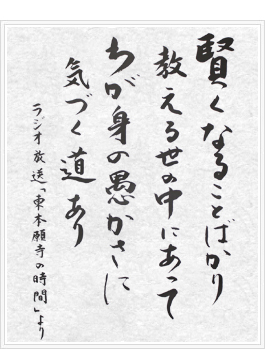 賢くなることばかり
教える世の中にあって
わが身の愚かさに
気づく道あり
ラジオ放送「東本願寺の時間」より